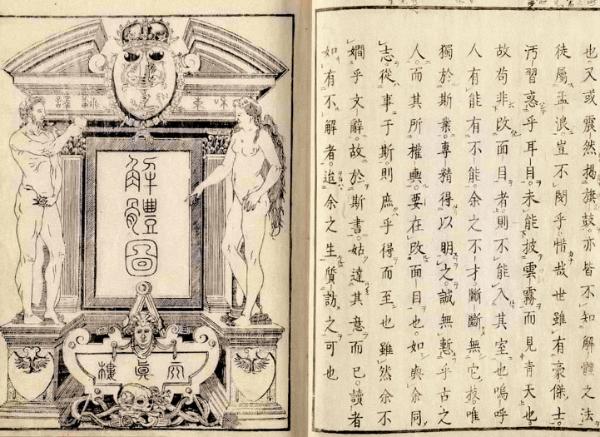 也又或震然揭旗鼓。亦皆不知解體之法
徒屬孟浪豈不閔乎。惜哉世雖有豪傑士。
汚習惑乎耳目。未能披雲霧而見青天也。
故苟非改面目者。則不能入其室也嗚呼
人有能有不能。余之不才斷斷無它技。唯
獨於斯業。專精得以明之。誠無慙乎古之
人。而其所權輿。要在改面目也。如與余同
志。從事于斯。則庶乎得而至也雖然余不
嫺乎文辭。故於斯書。姑達其意而已。讀者
如有不解者。迨余之生質訪之可也
解體圖
天眞樓